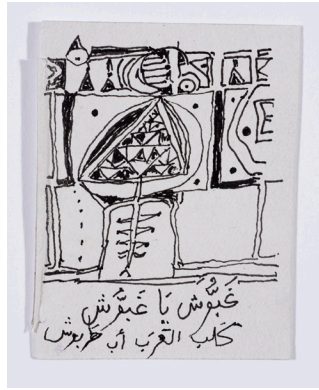 غَبُّوش يَا غَبُّوش
كلب العَرَب أب طربوش